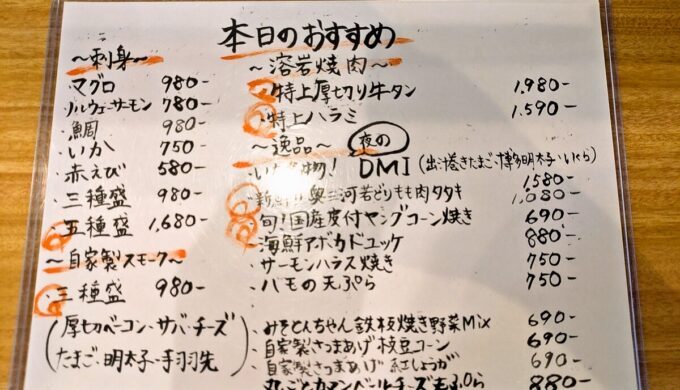 本日のおすすめ
〜刺身〜
・マグロ 980-
・ノルウェーサーモン 780-
・鯛 980-
・いか 750-
・赤えび 580-
・三種盛 980-
・五種盛 1,680-
〜自家製スモーク〜
・三種盛 980-
(厚切ベーコン・サバ・チーズ
たまご・明太子・手羽先)
〜溶岩焼肉〜
・特上厚切り牛タン 1,980-
・特上ハラミ 1,590-
〜逸品〜
夜の
物! DMI (出汁巻きたまご・博多明太子・いくら)
1,580-
・新鮮!奥三河若どりもも肉タタキ 1,080-
・旬!国産皮付ヤングコーン焼き 690-
・海鮮アボカドユッケ 880-
・サーモンハラス焼き 750-
・ハモの天ぷら 750-
・みそとんちゃん鉄板焼き野菜Mix 690-
・自家製さつまあげ枝豆コーン 690-
・自家製さつまあげ紅しょうが 690-
丸ごとカマンベールチーズ天ぷら 880-